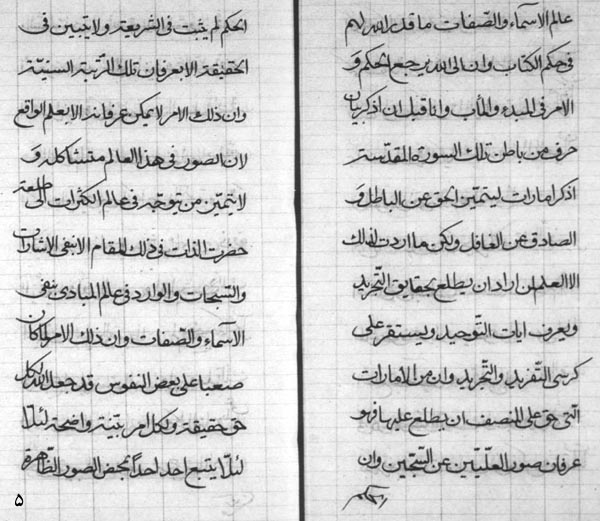 عالم الاسماء والصّفات ما قدر الله لهم
فى حكم الكتاب وان الى الله يرجع الحكم وَ
الامر فى المبدء والمأب وانا قبل ان اذكر بيان
حرف من باطن تلك السورة المقدّسة
اذكر امارات ليتميّز الحق عن الباطل وَ
الصادق عن الغافل ولكن ما اردت لذلك
الا العلم لمن اراد ان يطلع بحقايق التّجريد
ويعرف ايات التّوحيد ويستقر على
كرسى التّفريد والتّجريد وان من الامارات
الّتى حق على المنصف ان يطلع عليها فهو
عرفان صور العلّيّين عن السّجّين وان
الحكم
الحكم لم يثبت فى الشّريعة ولا يتبيّن فى
الحقيقة الا بعرفان تلك الرّتبة السنيّة
وان ذلك الامر لا يمكن عرفانه الا بعلم الواقع
لان الصور فى هذا العالم متشاكلة وَ
لا يتميّز من توجّه فى عالم الكثرات الى طلعة
حضرت الذات فى ذلك المقام الا بنفى الاشارات
والسّبحات والوارد فى عالم المبادى بنفى
الاسماء والصّفات وان ذلك الامر لما كان
صعبا على بعض النفوس قد جعل الله لكل
حق حقيقة ولكل امر بيّنة واضحة لئلّا
لئلّا يتبع احد احداً بمحض الصور الظّاهرة
۵